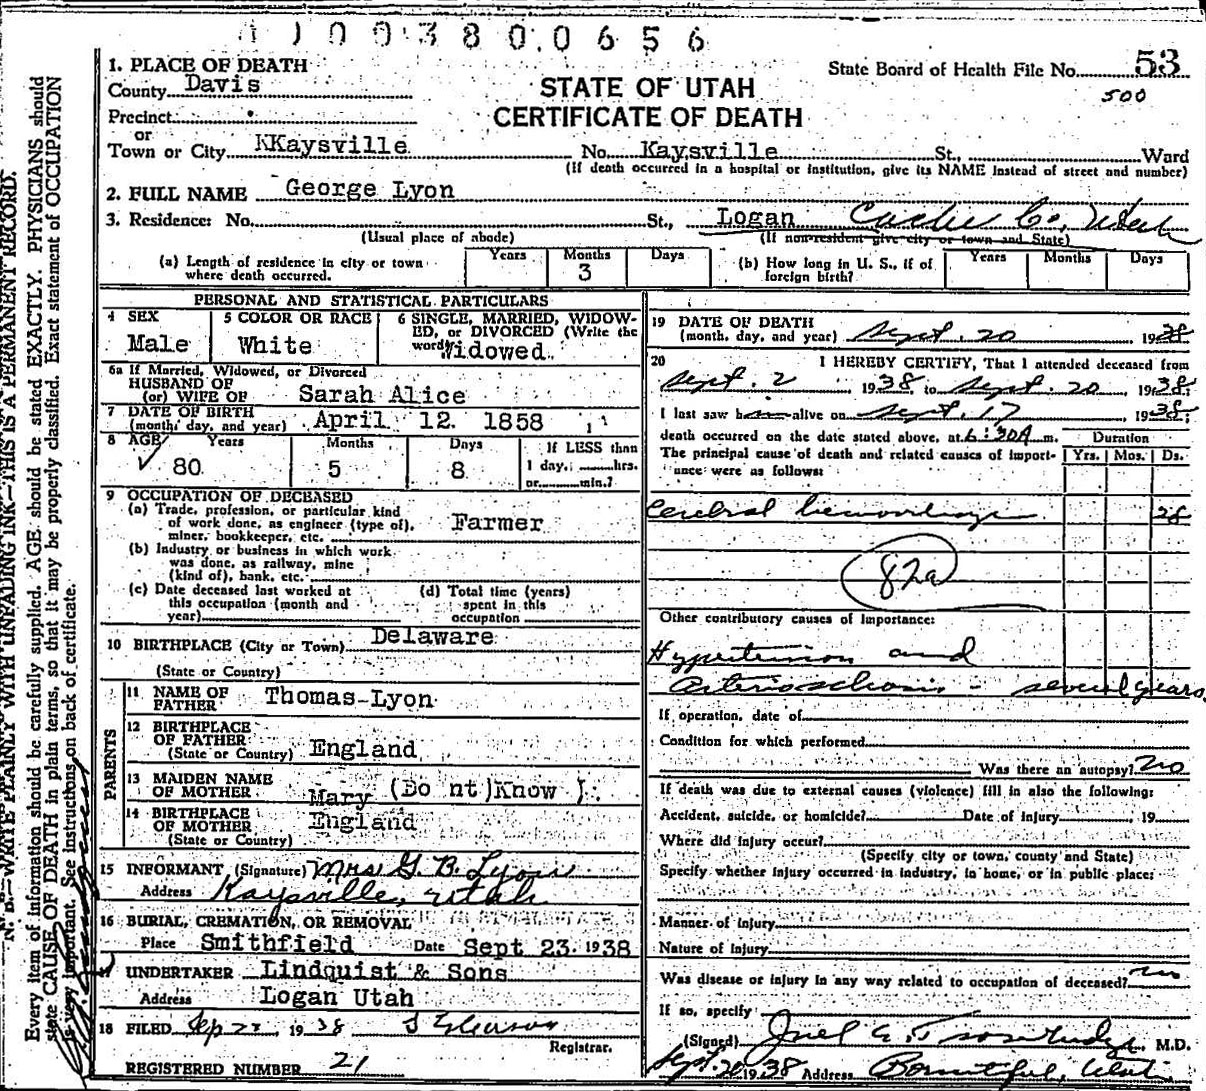 1003800656
1. PLACE OF DEATH
County Davis
STATE OF UTAH
CERTIFICATE OF DEATH
State Board of Health File No. 53
500
Precinct
or
Town or City KKaysville No. Kaysville St., Ward
(If death occurred in a hospital or institution, give its NAME instead of street and number)
2. FULL NAME George Lyon
3. Residence: No. St., Logan Cache Co, Utah
(Usual place of abode) (If non-resident give city or town and State)
(a) Length of residence in city or town where death occurred. Years Months 3 Days
(b) How long in U. S., if of foreign birth? Years Months Days
PERSONAL AND STATISTICAL PARTICULARS
4 SEX Male
5 COLOR OR RACE White
6 SINGLE, MARRIED, WIDOW-
ED, or DIVORCED (Write the
word) Widowed
6a If Married, Widowed, or Divorced
HUSBAND OF
(or) WIFE OF Sarah Alice
7 DATE OF BIRTH
(month, day, and year) April 12. 1858
8 AGE Years Months Days If LESS than
80 5 8 1 day, hrs.
or min.?
9 OCCUPATION OF DECEASED
(a) Trade, profession, or particular kind
of work done, as engineer (type of),
miner, bookkeeper, etc. Farmer
(b) Industry or business in which work
was done, as railway, mine
(kind of), bank, etc.
(c) Date deceased last worked at
this occupation (month and
year)
(d) Total time (years)
spent in this
occupation
10 BIRTHPLACE (City or Town) Delaware
(State or Country)
PARENTS
11 NAME OF
FATHER Thomas-Lyon
12 BIRTHPLACE
OF FATHER
(State or Country) England
13 MAIDEN NAME
OF MOTHER Mary (Do nt )Know )
14 BIRTHPLACE
OF MOTHER England
(State or Country)
15 INFORMANT (Signature) Mrs G. B. Lyon
Address Kaysville, Utah
16 BURIAL, CREMATION, OR REMOVAL
Place Smithfield Date Sept 23. 1938
17 UNDERTAKER Lindquist & Sons
Address Logan Utah
18 FILED Sep 23 1938
Registrar.
REGISTERED NUMBER 21
19 DATE OF DEATH
(month, day, and year) Sept. 20 1938
20 I HEREBY CERTIFY, That I attended deceased from
Sept. 2 1938, to Sept. 20, 1938;
I last saw h alive on Sept. 17 1938;
death occurred on the date stated above, at 6:30A m.
Duration
The principal cause of death and related causes of import-
ance were as follows:
Yrs. Mos. Ds.
Cerebral hemorrhage 28
82a
Other contributory causes of importance:
Hypertension and
Arteriosclerosis - several years
If operation, date of
Condition for which performed
Was there an autopsy? no
If death was due to external causes (violence) fill in also the following:
Accident, suicide, or homicide? Date of injury , 19
Where did injury occur?
(Specify city or town, county and State)
Specify whether injury occurred in industry, in home, or in public place:
Manner of injury
Nature of injury
Was disease or injury in any way related to occupation of deceased? no
If so, specify
(Signed) M.D.
Sept. 20 1938 Address Bountiful, Utah
N. B.—WRITE PLAINLY WITH UNFADING INK—THIS IS A PERMANENT RECORD.
Every item of information should be carefully supplied. AGE should be stated EXACTLY. PHYSICIANS should
state CAUSE OF DEATH in plain terms, so that it may be properly classified. Exact statement of OCCUPATION
is very important. See instructions on back of certificate.